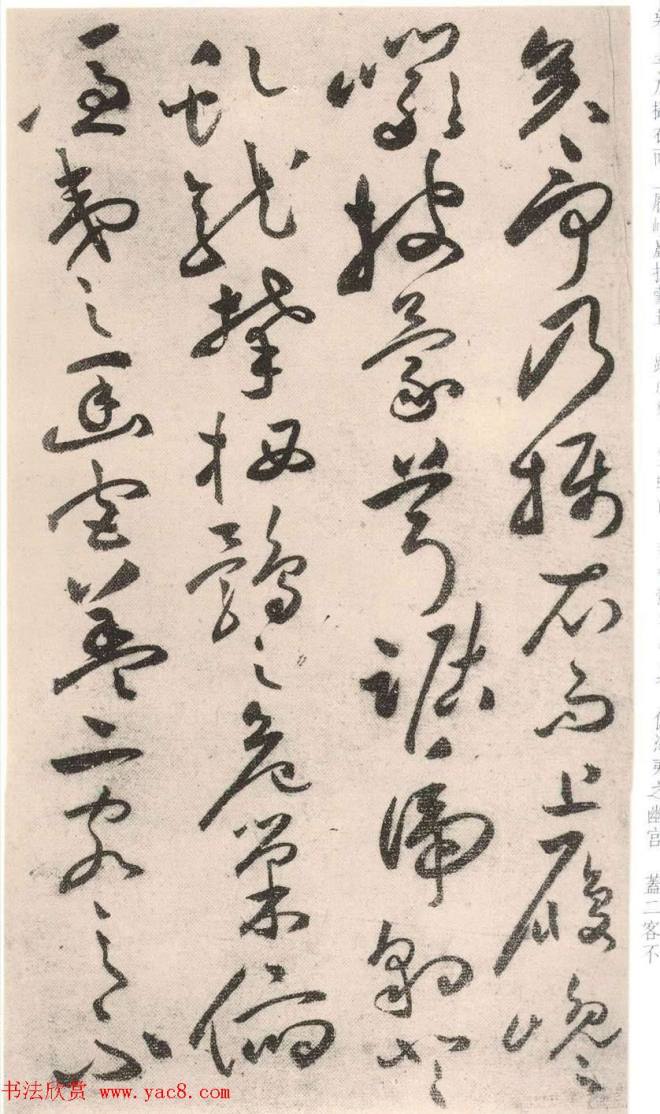 之幽宮 蓋二客不
矣予乃攝衣而上履巉
巖披蒙茸踞虎豹登
虬龍攀栖鶻之危巢俯
馮夷之幽宮蓋二客之不
书法欣赏 www.yac8.com